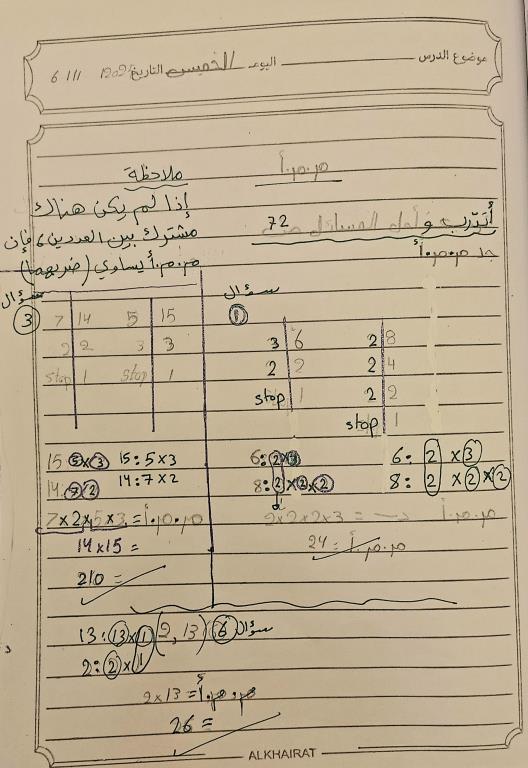 موضوع الدرس اليوم الخميس التاريخ
م.م.أ
ملاحظة
إذا لم يكن هناك
مشترك بين العددين فإن
م.م.أ يساوي (ضربهما)
أتدرب وأحل المسائل 72
جد م.م.أ
سؤال
1
3 | 6   2 | 8
2 | 2   2 | 4
stop | 1   2 | 2
stop | 1
6: 2 × 3
8: 2 × 2 × 2
6: 2 × 3
8: 2 × 2 × 2
م.م.أ = 2×2×2×3
م.م.أ = 24
سؤال
3
7 | 14   5 | 15
2 | 2   3 | 3
stop | 1   stop | 1
15 5×3   15: 5×3
14: 7 2   14: 7×2
م.م.أ = 7×2×5×3
14×15 =
210 =
سؤال 6 (2, 13)
13: 13×1
2: 2×1
م.م.أ = 2×13
26 =
ALKHAIRAT